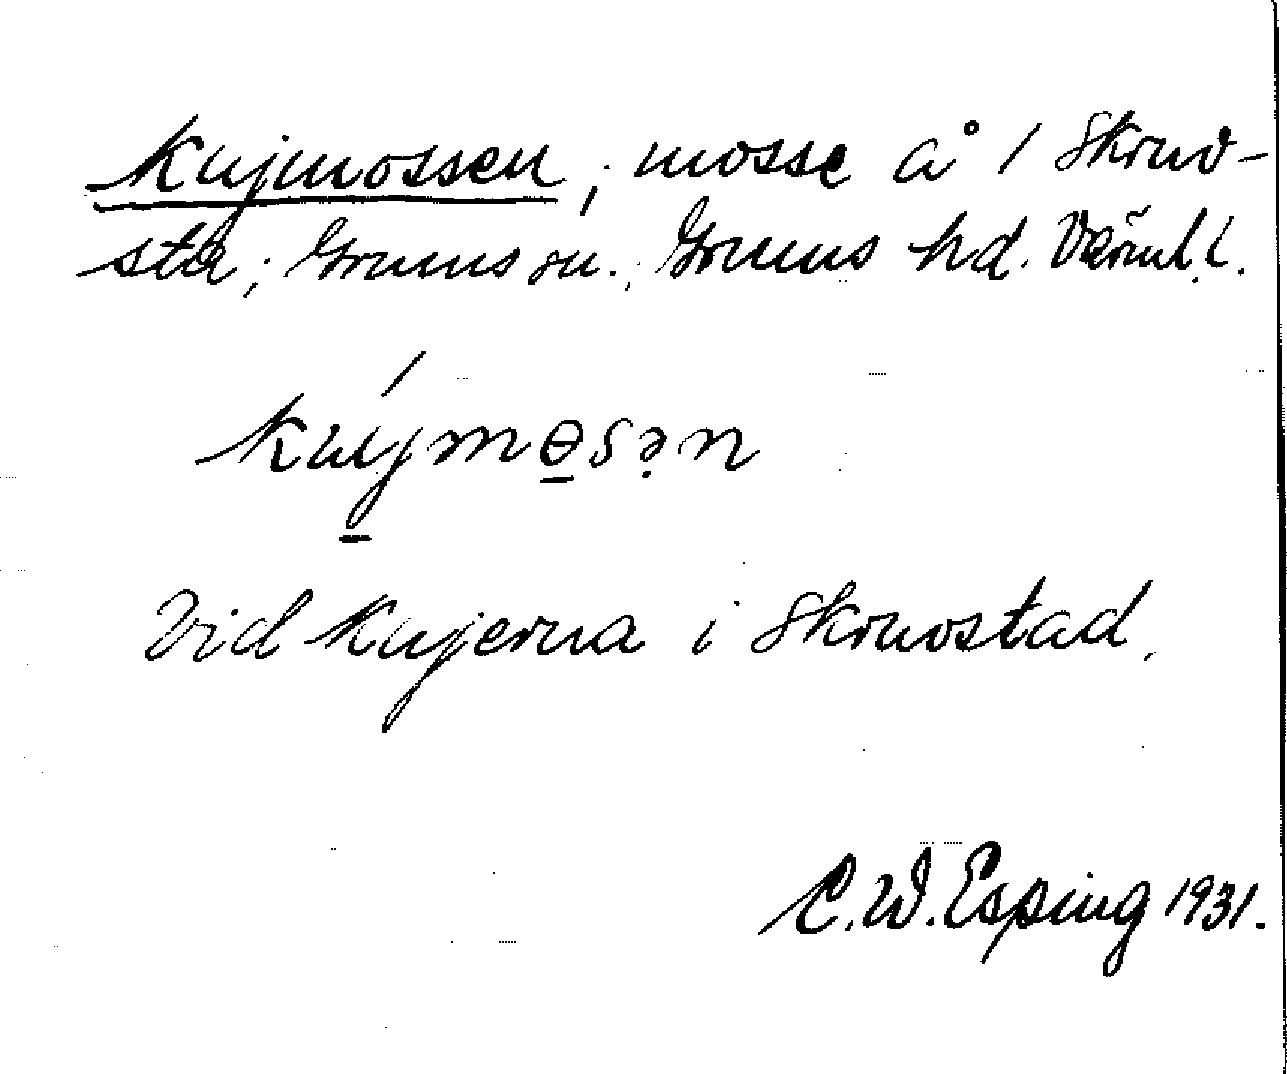 Kujmossen, mosse å 1 Skruv-
sta, Grums sn., Grums hd. Värml.
kujmɵsən
Vid Kujerna i Skruvstad.
C. W. Esping 1931.